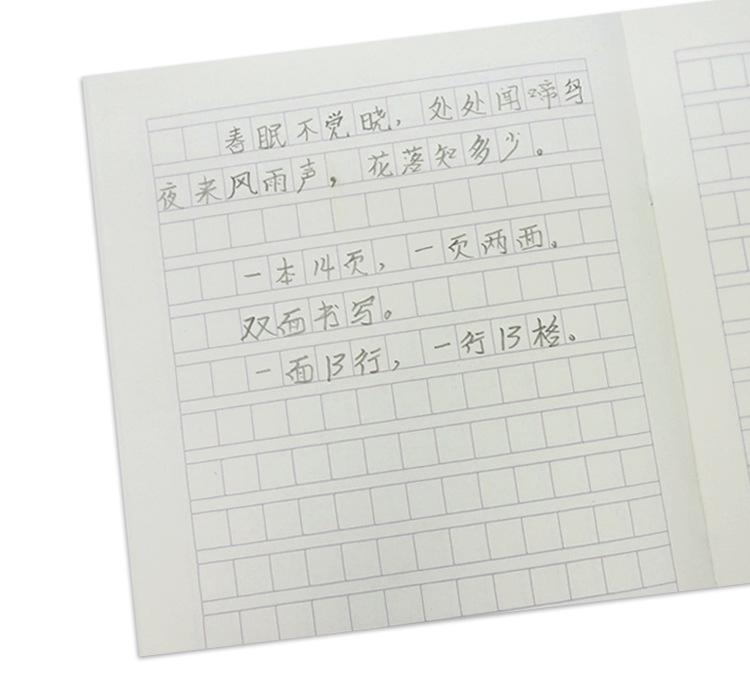 春眠不觉晓，处处闻啼鸟
夜来风雨声，花落知多少。
一本14页，一页两面。
双面书写。
一面13行，一行13格。